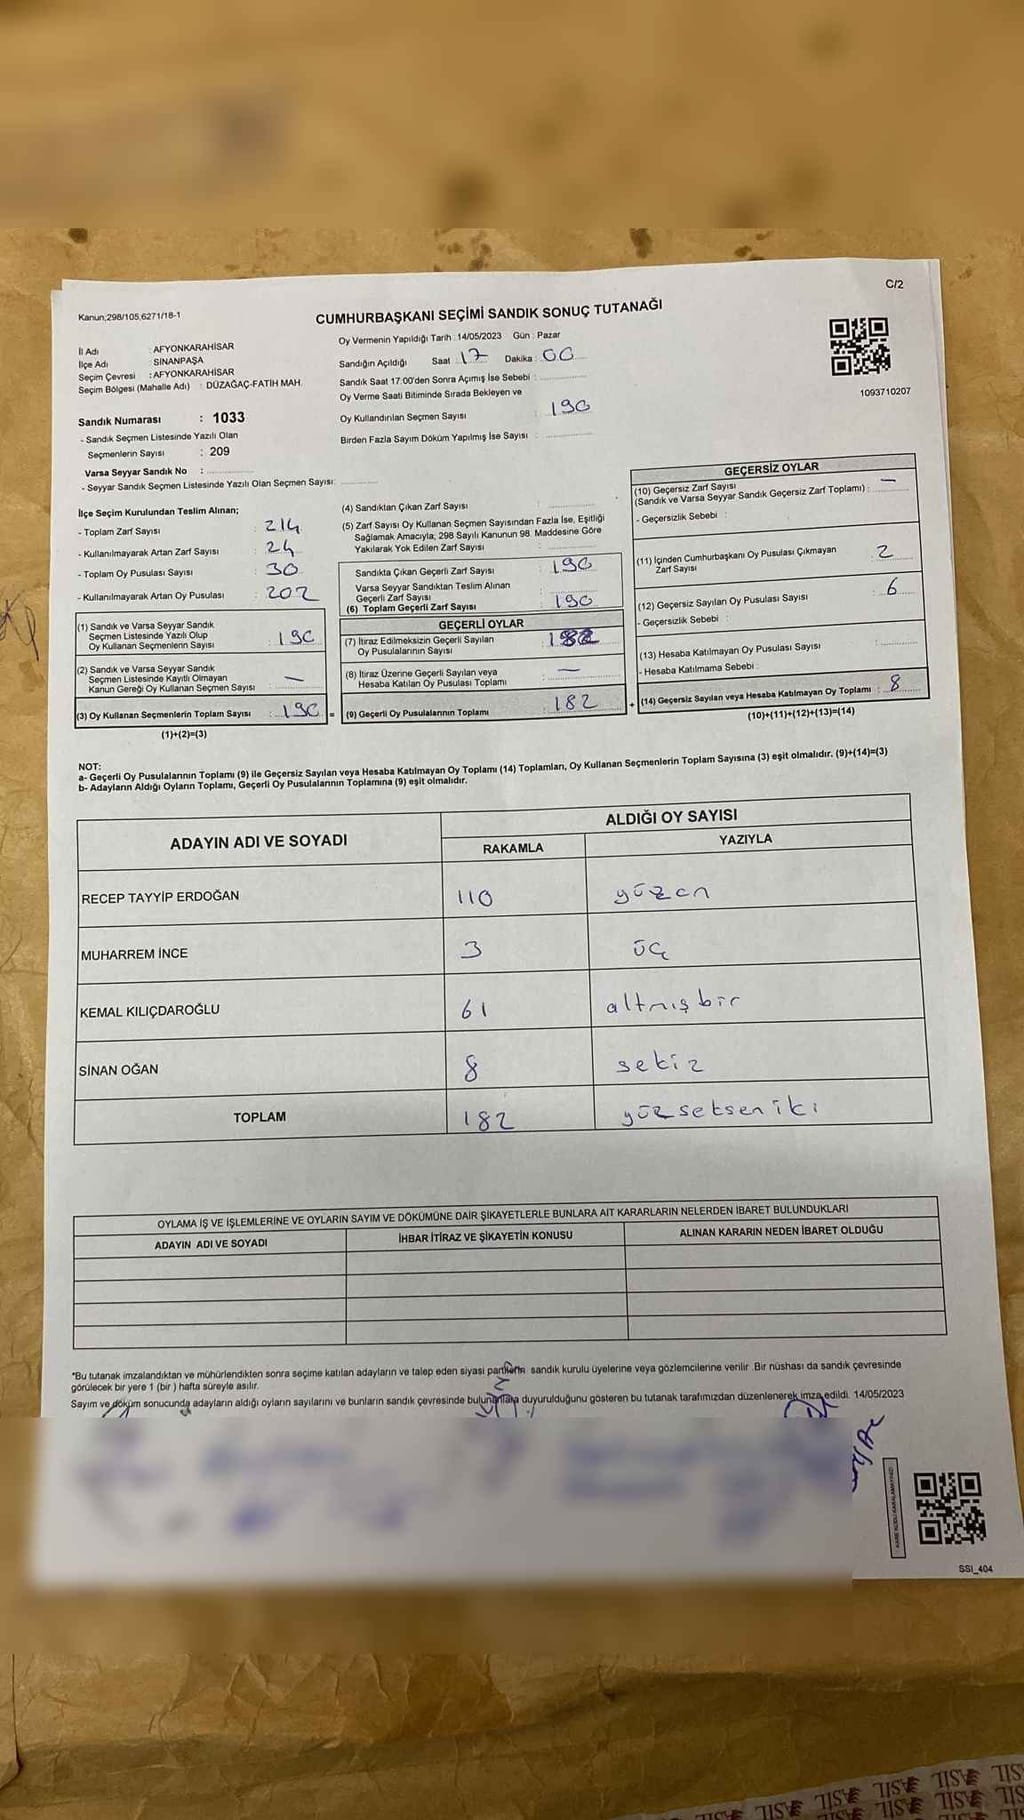 C/2
Kanun;298/105,6271/18-1
CUMHURBAŞKANI SEÇİMİ SANDIK SONUÇ TUTANAĞI
İl Adı : AFYONKARAHİSAR
İlçe Adı : SİNANPAŞA
Seçim Çevresi : AFYONKARAHİSAR
Seçim Bölgesi (Mahalle Adı) : DÜZAĞAÇ-FATİH MAH.
Sandık Numarası : 1033
- Sandık Seçmen Listesinde Yazılı Olan
Seçmenlerin Sayısı : 209
Varsa Seyyar Sandık No :
- Seyyar Sandık Seçmen Listesinde Yazılı Olan Seçmen Sayısı:
Oy Vermenin Yapıldığı Tarih :14/05/2023 Gün : Pazar
Sandığın Açıldığı Saat 17 Dakika : 00
Sandık Saat 17:00'den Sonra Açımış İse Sebebi :
Oy Verme Saati Bitiminde Sırada Bekleyen ve
Oy Kullandırılan Seçmen Sayısı : 190
Birden Fazla Sayım Döküm Yapılmış İse Sayısı :
1093710207
İlçe Seçim Kurulundan Teslim Alınan;
- Toplam Zarf Sayısı : 214
- Kullanılmayarak Artan Zarf Sayısı : 24
- Toplam Oy Pusulası Sayısı : 30
- Kullanılmayarak Artan Oy Pusulası : 202
(1) Sandık ve Varsa Seyyar Sandık
Seçmen Listesinde Yazılı Olup
Oy Kullanan Seçmenlerin Sayısı : 190
(2) Sandık ve Varsa Seyyar Sandık
Seçmen Listesinde Kayıtlı Olmayan
Kanun Gereği Oy Kullanan Seçmen Sayısı : —
(3) Oy Kullanan Seçmenlerin Toplam Sayısı : 190 =
(1)+(2)=(3)
(4) Sandıktan Çıkan Zarf Sayısı :
(5) Zarf Sayısı Oy Kullanan Seçmen Sayısından Fazla İse, Eşitliği
Sağlamak Amacıyla; 298 Sayılı Kanunun 98. Maddesine Göre
Yakılarak Yok Edilen Zarf Sayısı :
Sandıkta Çıkan Geçerli Zarf Sayısı : 190
Varsa Seyyar Sandıktan Teslim Alınan
Geçerli Zarf Sayısı :
(6) Toplam Geçerli Zarf Sayısı : 190
GEÇERLİ OYLAR
(7) İtiraz Edilmeksizin Geçerli Sayılan
Oy Pusulalarının Sayısı : 182
(8) İtiraz Üzerine Geçerli Sayılan veya
Hesaba Katılan Oy Pusulası Toplamı : —
(9) Geçerli Oy Pusulalarının Toplamı : 182 +
GEÇERSİZ OYLAR
(10) Geçersiz Zarf Sayısı
(Sandık ve Varsa Seyyar Sandık Geçersiz Zarf Toplamı) : —
- Geçersizlik Sebebi :
(11) İçinden Cumhurbaşkanı Oy Pusulası Çıkmayan
Zarf Sayısı : 2
(12) Geçersiz Sayılan Oy Pusulası Sayısı : 6
- Geçersizlik Sebebi :
(13) Hesaba Katılmayan Oy Pusulası Sayısı :
- Hesaba Katılmama Sebebi :
(14) Geçersiz Sayılan veya Hesaba Katılmayan Oy Toplamı : 8
(10)+(11)+(12)+(13)=(14)
NOT:
a- Geçerli Oy Pusulalarının Toplamı (9) ile Geçersiz Sayılan veya Hesaba Katılmayan Oy Toplamı (14) Toplamları, Oy Kullanan Seçmenlerin Toplam Sayısına (3) eşit olmalıdır. (9)+(14)=(3)
b- Adayların Aldığı Oyların Toplamı, Geçerli Oy Pusulalarının Toplamına (9) eşit olmalıdır.
ADAYIN ADI VE SOYADI ALDIĞI OY SAYISI
RAKAMLA YAZIYLA
RECEP TAYYİP ERDOĞAN 110 yüzon
MUHARREM İNCE 3 üç
KEMAL KILIÇDAROĞLU 61 altmışbir
SİNAN OĞAN 8 sekiz
TOPLAM 182 yüzseksen iki
OYLAMA İŞ VE İŞLEMLERİNE VE OYLARIN SAYIM VE DÖKÜMÜNE DAİR ŞİKAYETLERLE BUNLARA AİT KARARLARIN NELERDEN İBARET BULUNDUKLARI
ADAYIN ADI VE SOYADI İHBAR İTİRAZ VE ŞİKAYETİN KONUSU ALINAN KARARIN NEDEN İBARET OLDUĞU
*Bu tutanak imzalandıktan ve mühürlendikten sonra seçime katılan adayların ve talep eden siyasi partilerin sandık kurulu üyelerine veya gözlemcilerine verilir .Bir nüshası da sandık çevresinde
görülecek bir yere 1 (bir ) hafta süreyle asılır.
Sayım ve döküm sonucunda adayların aldığı oyların sayılarını ve bunların sandık çevresinde bulunanlara duyurulduğunu gösteren bu tutanak tarafımızdan düzenlenerek imza edildi. 14/05/2023
SSI_404
ASİL ASİL ASİL ASİL